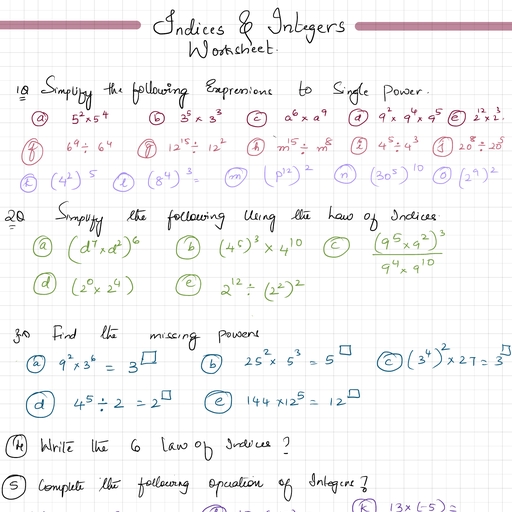 Indices & Integers
Worksheet.
1Q Simplify the following Expressions to Single Power.
a 5² × 5⁴ b 3⁵ × 3³ c a⁶ × a⁹ d 9² × 9⁴ × 9⁵ e 2¹² × 2³.
f 6⁹ ÷ 6⁴ g 12¹⁵ ÷ 12² h m¹⁵ ÷ m⁸ i 4⁵ ÷ 4³ j 20⁸ ÷ 20⁵
k (4²)⁵ l (8⁴)³ = m (p¹²)² n (30⁵)¹⁰ o (2⁹)²
2Q Simplify the following Using the Law of Indices.
a (d⁷ × d²)⁶ b (4⁵)³ × 4¹⁰ c (9⁵ × 9²)³ / 9⁴ × 9¹⁰
d (2⁰ × 2⁴) e 2¹² ÷ (2²)²
3Q Find the missing Powers
a 9² × 3⁶ = 3□ b 25² × 5³ = 5□ c (3⁴)² × 27 = 3□
d 4⁵ ÷ 2 = 2□ e 144 × 12⁵ = 12□
4 Write the 6 Law of Indices?
5 Complete the following operation of Integers?
k 13 × (-5) =